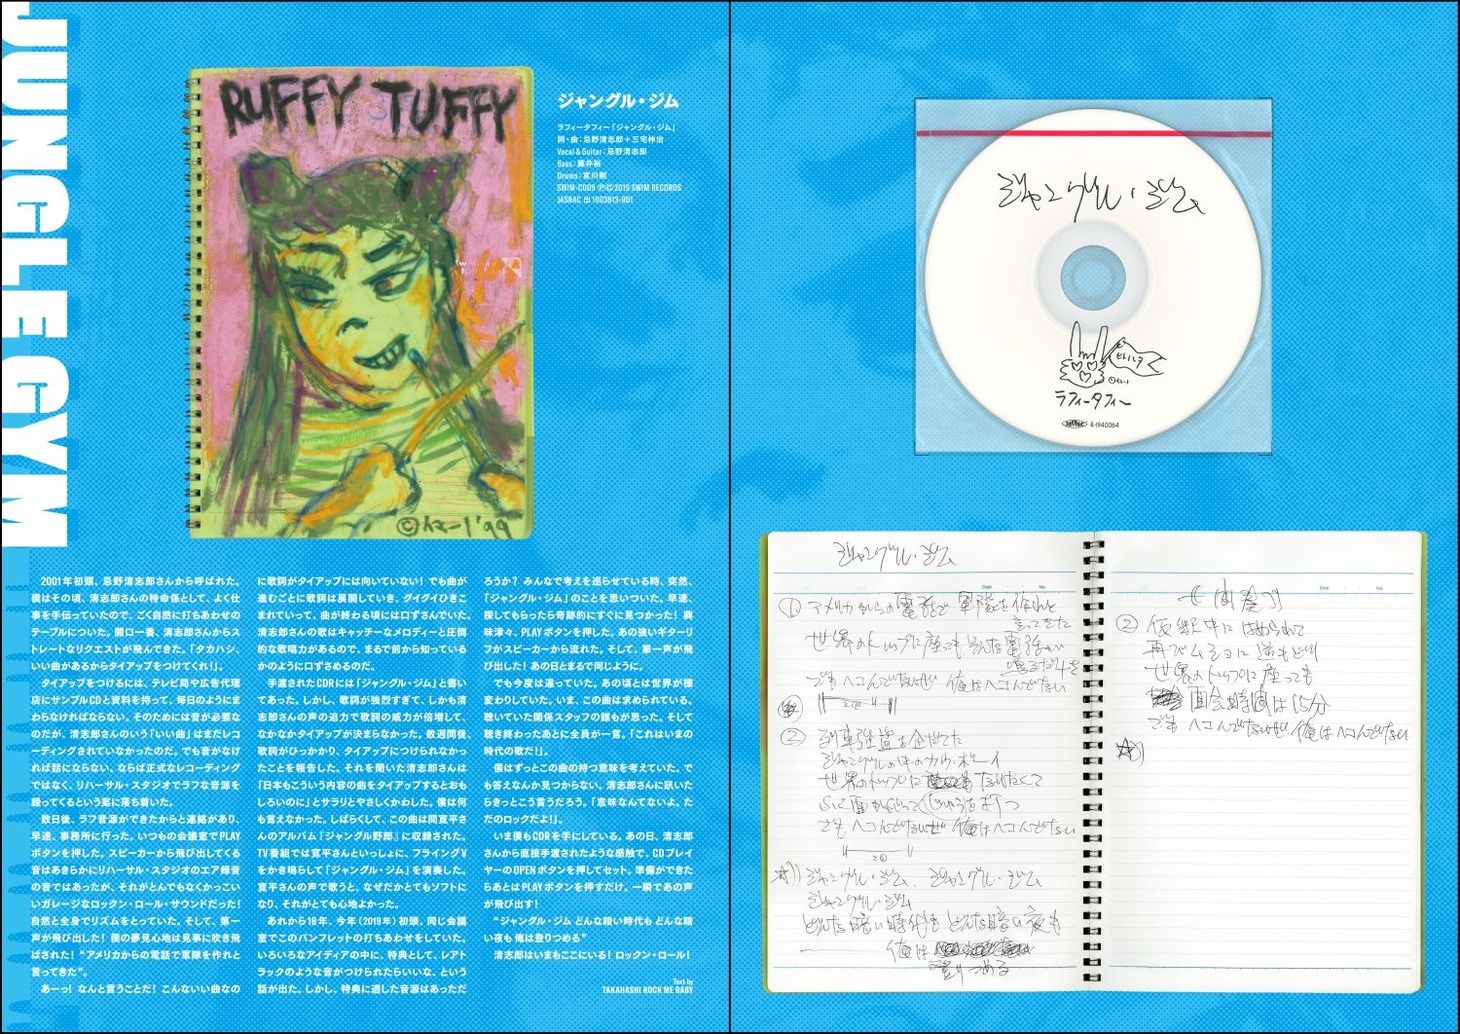 JUNGLE GYM
RUFFY TUFFY
'99
ジャングル・ジム
ラフィータフィー「ジャングル・ジム」
詞・曲：忌野清志郎＋三宅伸治
Vocal & Guitar：忌野清志郎
Bass：藤井裕
Drums：宮川剛
SWIM-CD09 ℗© 2019 SWIM RECORDS
JASRAC 出 1903813-901
2001年初頭、忌野清志郎さんから呼ばれた。
僕はその頃、清志郎さんの特命係として、よく仕
事を手伝っていたので、ごく自然に打ちあわせの
テーブルについた。開口一番、清志郎さんからス
トレートなリクエストが飛んできた。「タカハシ、
いい曲があるからタイアップをつけてくれ！」。
タイアップをつけるには、テレビ局や広告代理
店にサンプルCDと資料を持って、毎日のようにま
わらなければならない。そのためには音が必要な
のだが、清志郎さんのいう「いい曲」はまだレコ
ーディングされていなかったのだ。でも音がなけ
れば話にならない。ならば正式なレコーディング
ではなく、リハーサル・スタジオでラフな音源を
録ってくるという案に落ち着いた。
数日後、ラフ音源ができたからと連絡があり、
早速、事務所に行った。いつもの会議室でPLAY
ボタンを押した。スピーカーから飛び出してくる
音はあきらかにリハーサル・スタジオのエア録音
の音ではあったが、それがとんでもなくかっこい
いガレージなロックン・ロール・サウンドだった！
自然と全身でリズムをとっていた。そして、第一
声が飛び出した！ 僕の夢見心地は見事に吹き飛
ばされた！“アメリカからの電話で軍隊を作れと
言ってきた”。
あーっ！ なんと言うことだ！ こんないい曲なの
に歌詞がタイアップには向いていない！ でも曲が
進むごとに歌詞は展開していき、グイグイひきこ
まれていって、曲が終わる頃には口ずさんでいた。
清志郎さんの歌はキャッチーなメロディーと圧倒
的な歌唱力があるので、まるで前から知っている
かのように口ずさめるのだ。
手渡されたCDRには「ジャングル・ジム」と書い
てあった。しかし、歌詞が強烈すぎて、しかも清
志郎さんの声の迫力で歌詞の威力が倍増して、
なかなかタイアップが決まらなかった。数週間後、
歌詞がひっかかり、タイアップにつけられなかっ
たことを報告した。それを聞いた清志郎さんは
「日本もこういう内容の曲をタイアップするとおも
しろいのに」とサラリとやさしくかわした。僕は何
も言えなかった。しばらくして、この曲は間寛平さ
んのアルバム『ジャングル野郎』に収録された。
TV番組では寛平さんといっしょに、フライングV
をかき鳴らして「ジャングル・ジム」を演奏した。
寛平さんの声で歌うと、なぜだかとてもソフトに
なり、それがとても心地よかった。
あれから18年、今年（2019年）初頭、同じ会議
室でこのパンフレットの打ちあわせをしていた。
いろいろなアイディアの中に、特典として、レアト
ラックのような音がつけられたらいいな、という
話が出た。しかし、特典に適した音源はあっただ
ろうか？ みんなで考えを巡らせている時、突然、
「ジャングル・ジム」のことを思いついた。早速、
探してもらったら奇跡的にすぐに見つかった！ 興
味津々、PLAYボタンを押した。あの強いギターリ
フがスピーカーから流れた。そして、第一声が飛
び出した！ あの日とまるで同じように。
でも今度は違っていた。あの頃とは世界が様
変わりしていた。いま、この曲は求められている。
聴いていた関係スタッフの誰もが思った。そして
聴き終わったあとに全員が一言。「これはいまの
時代の歌だ！」。
僕はずっとこの曲の持つ意味を考えていた。で
も答えなんか見つからない。清志郎さんに訊いた
らきっとこう言うだろう。「意味なんてないよ。た
だのロックだよ！」。
いま僕もCDRを手にしている。あの日、清志郎
さんから直接手渡されたような感触で、CDプレイ
ヤーのOPENボタンを押してセット。準備ができた
らあとはPLAYボタンを押すだけ。一瞬であの声
が飛び出す！
“ジャングル・ジム どんな暗い時代も どんな暗
い夜も 俺は登りつめる”
清志郎はいまもここにいる！ ロックン・ロール！
Text by
TAKAHASHI ROCK ME BABY
ジャングル・ジム
ラフィータフィー
R-1940064
ジャングル・ジム
Date
No.
① アメリカからの電話で 軍隊を作れと
言ってきた
世界のトップに座っても そんな電話が
鳴るだけさ
でも ヘコんでないぜ 俺はヘコんでない
②
列車強盗を企てた
ジャングルの中のカウボーイ
世界のトップに なりたくて
でも ヘコんでないぜ 俺はヘコんでない
ジャングル・ジム、ジャングル・ジム
ジャングル・ジム
どんな暗い時代も どんな暗い夜も
俺は
登りつめる
Date
No.
間奏
② 仮釈中に はめられて
再びムショに逆もどり
世界のトップに座っても
面会時間は15分
でも ヘコんでないぜ 俺はヘコんでない